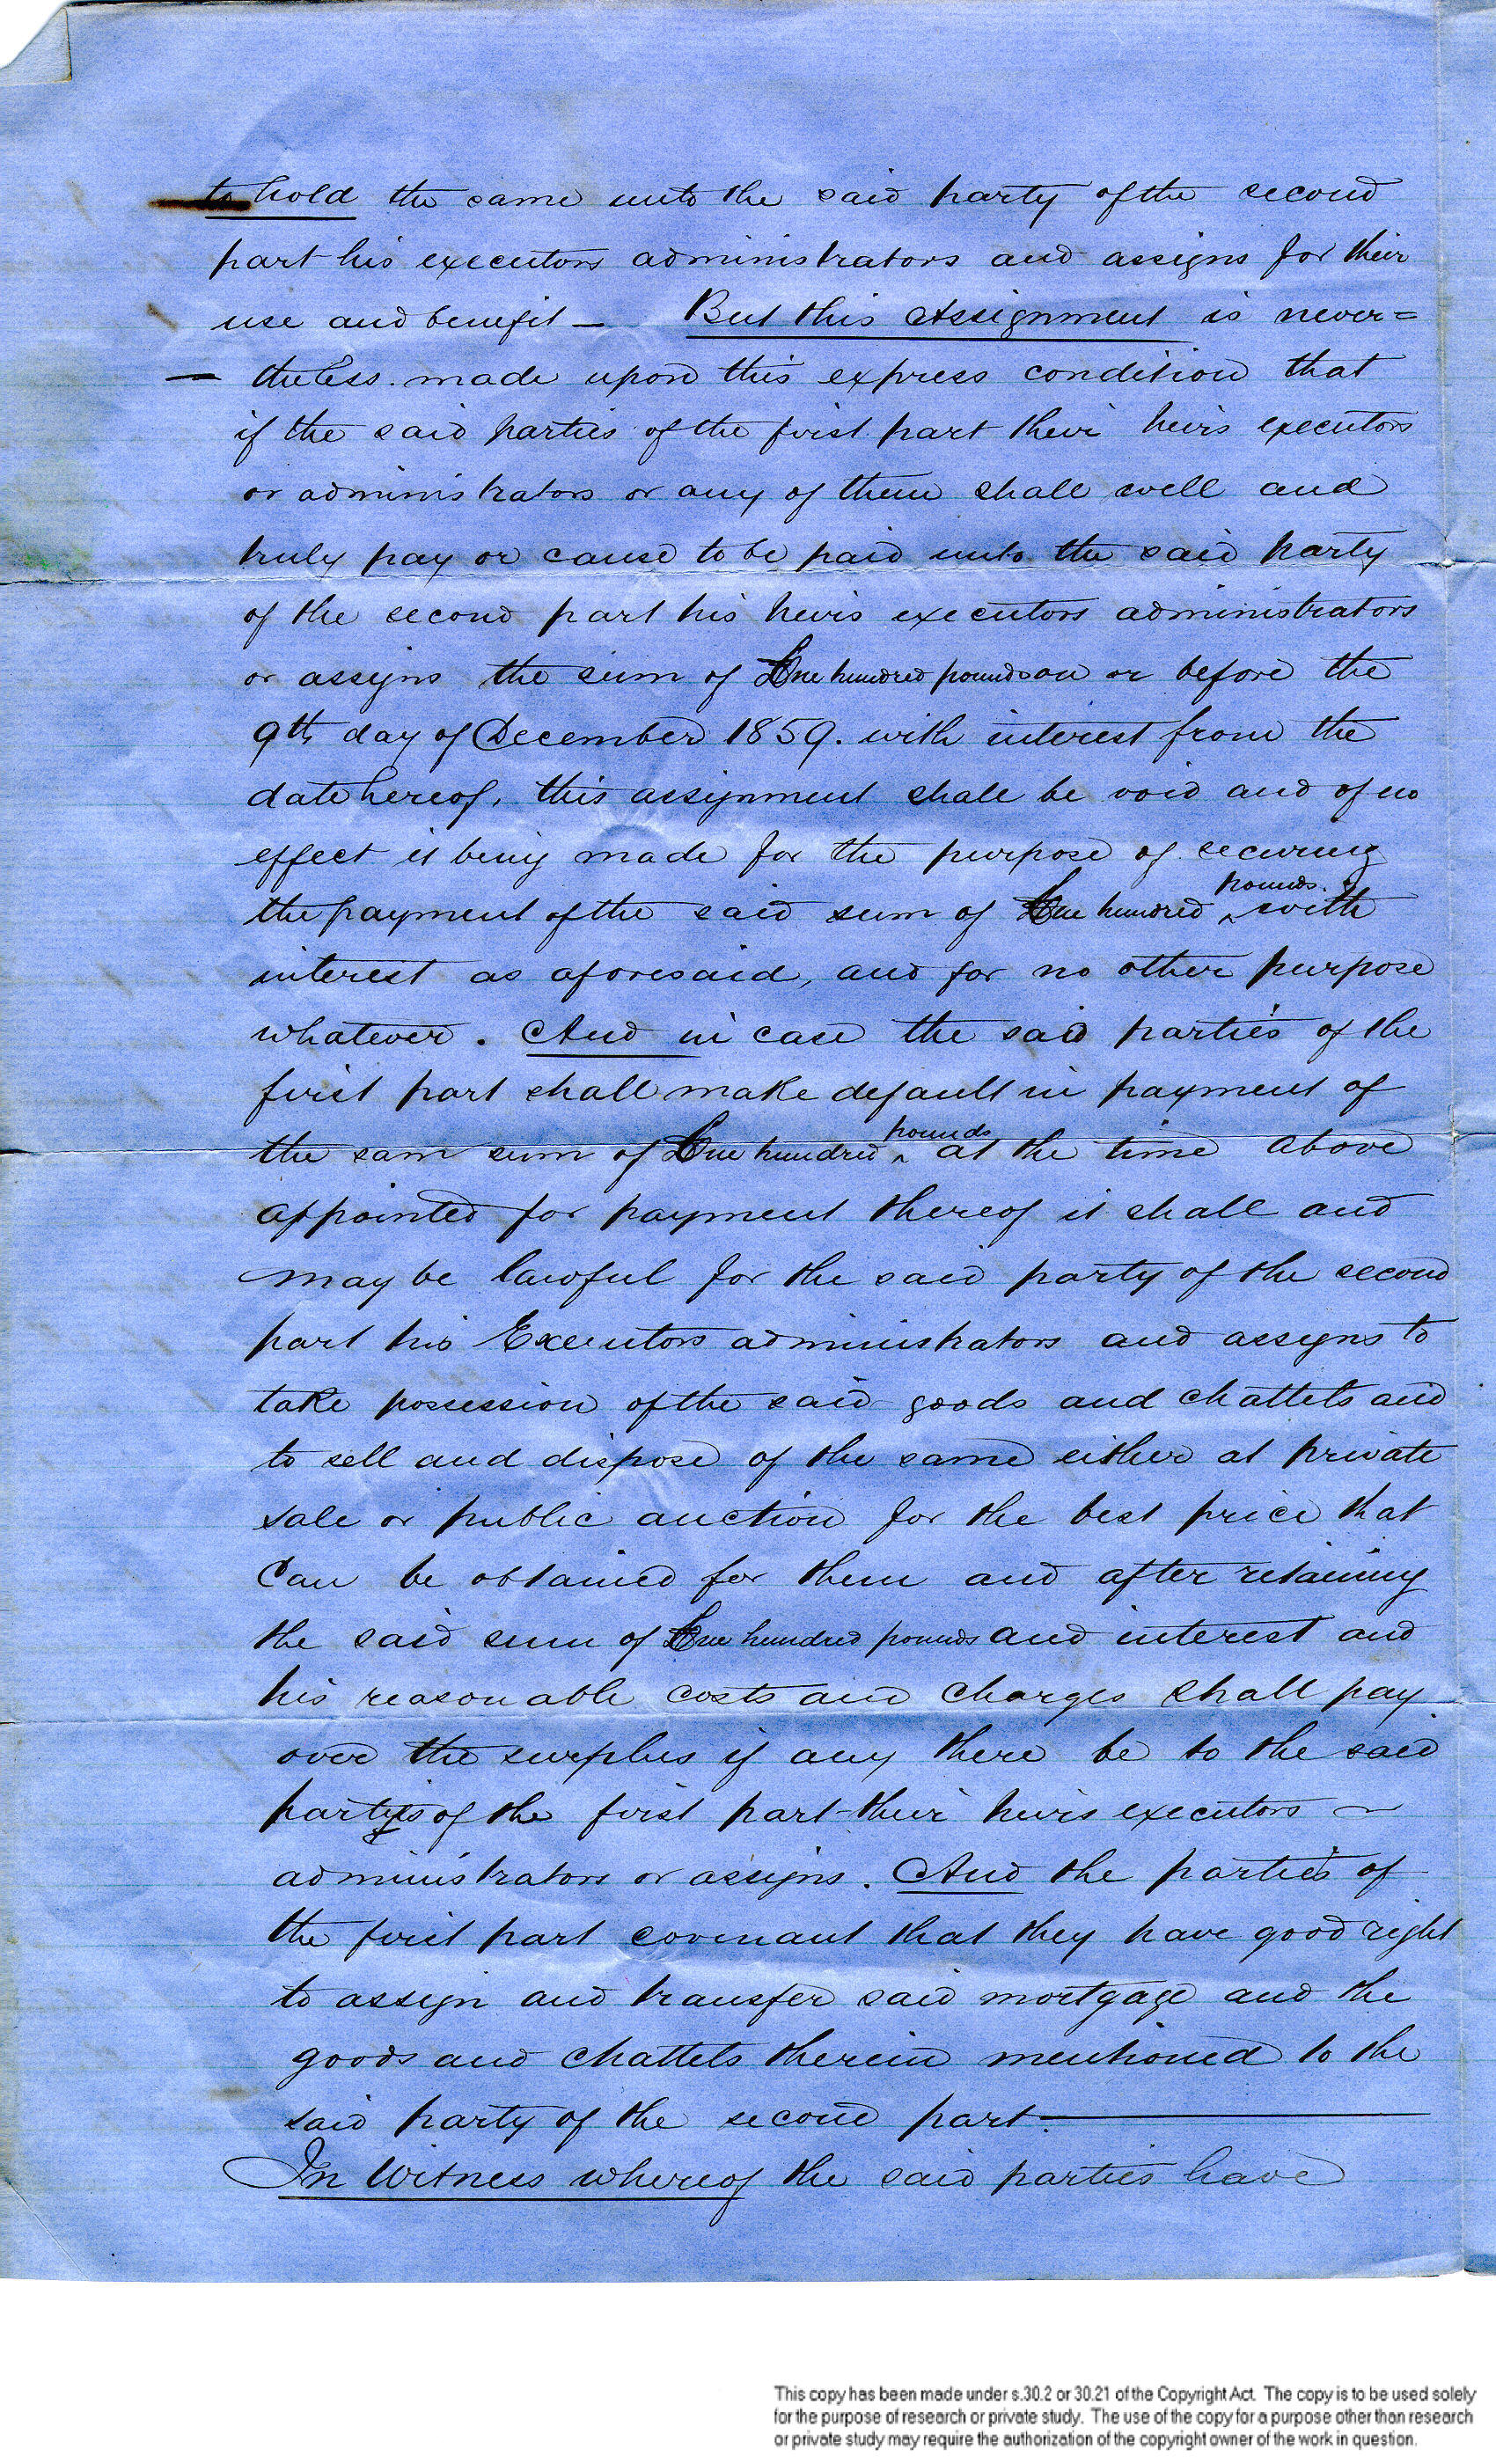 to hold the same unto the said party of the second
part his executors administrators and assigns for their
use and benefit — But this Assignment is never=
— theless made upon this express condition that
if the said parties of the first part their heirs executors
or administrators or any of them shall well and
truly pay or cause to be paid unto the said party
of the second part his heirs executors administrators
or assigns the sum of One hundred pounds on or before the
9th day of December 1859. with interest from the
date hereof, this assignment shall be void and of no
effect it being made for the purpose of securing
the payment of the said sum of One hundred pounds with
interest as aforesaid, and for no other purpose
whatever. And in case the said parties of the
first part shall make default in payment of
the sam sum of One hundred pounds at the time above
appointed for payment thereof it shall and
may be lawful for the said party of the second
part his Executors administrators and assigns to
take possession of the said goods and chattels and
to sell and dispose of the same either at private
sale or public auction for the best price that
can be obtained for them and after retaining
the said sum of One hundred pounds and interest and
his reasonable costs and charges shall pay
over the surplus if any there be to the said
parties of the first part their heirs executors
administrators or assigns. And the parties of
the first part covenant that they have good right
to assign and transfer said mortgage and the
goods and chattels therein mentioned to the
said party of the second part.
In Witness whereof the said parties have
This copy has been made under s.30.2 or 30.21 of the Copyright Act. The copy is to be used solely
for the purpose of research or private study. The use of the copy for a purpose other than research
or private study may require the authorization of the copyright owner of the work in question.